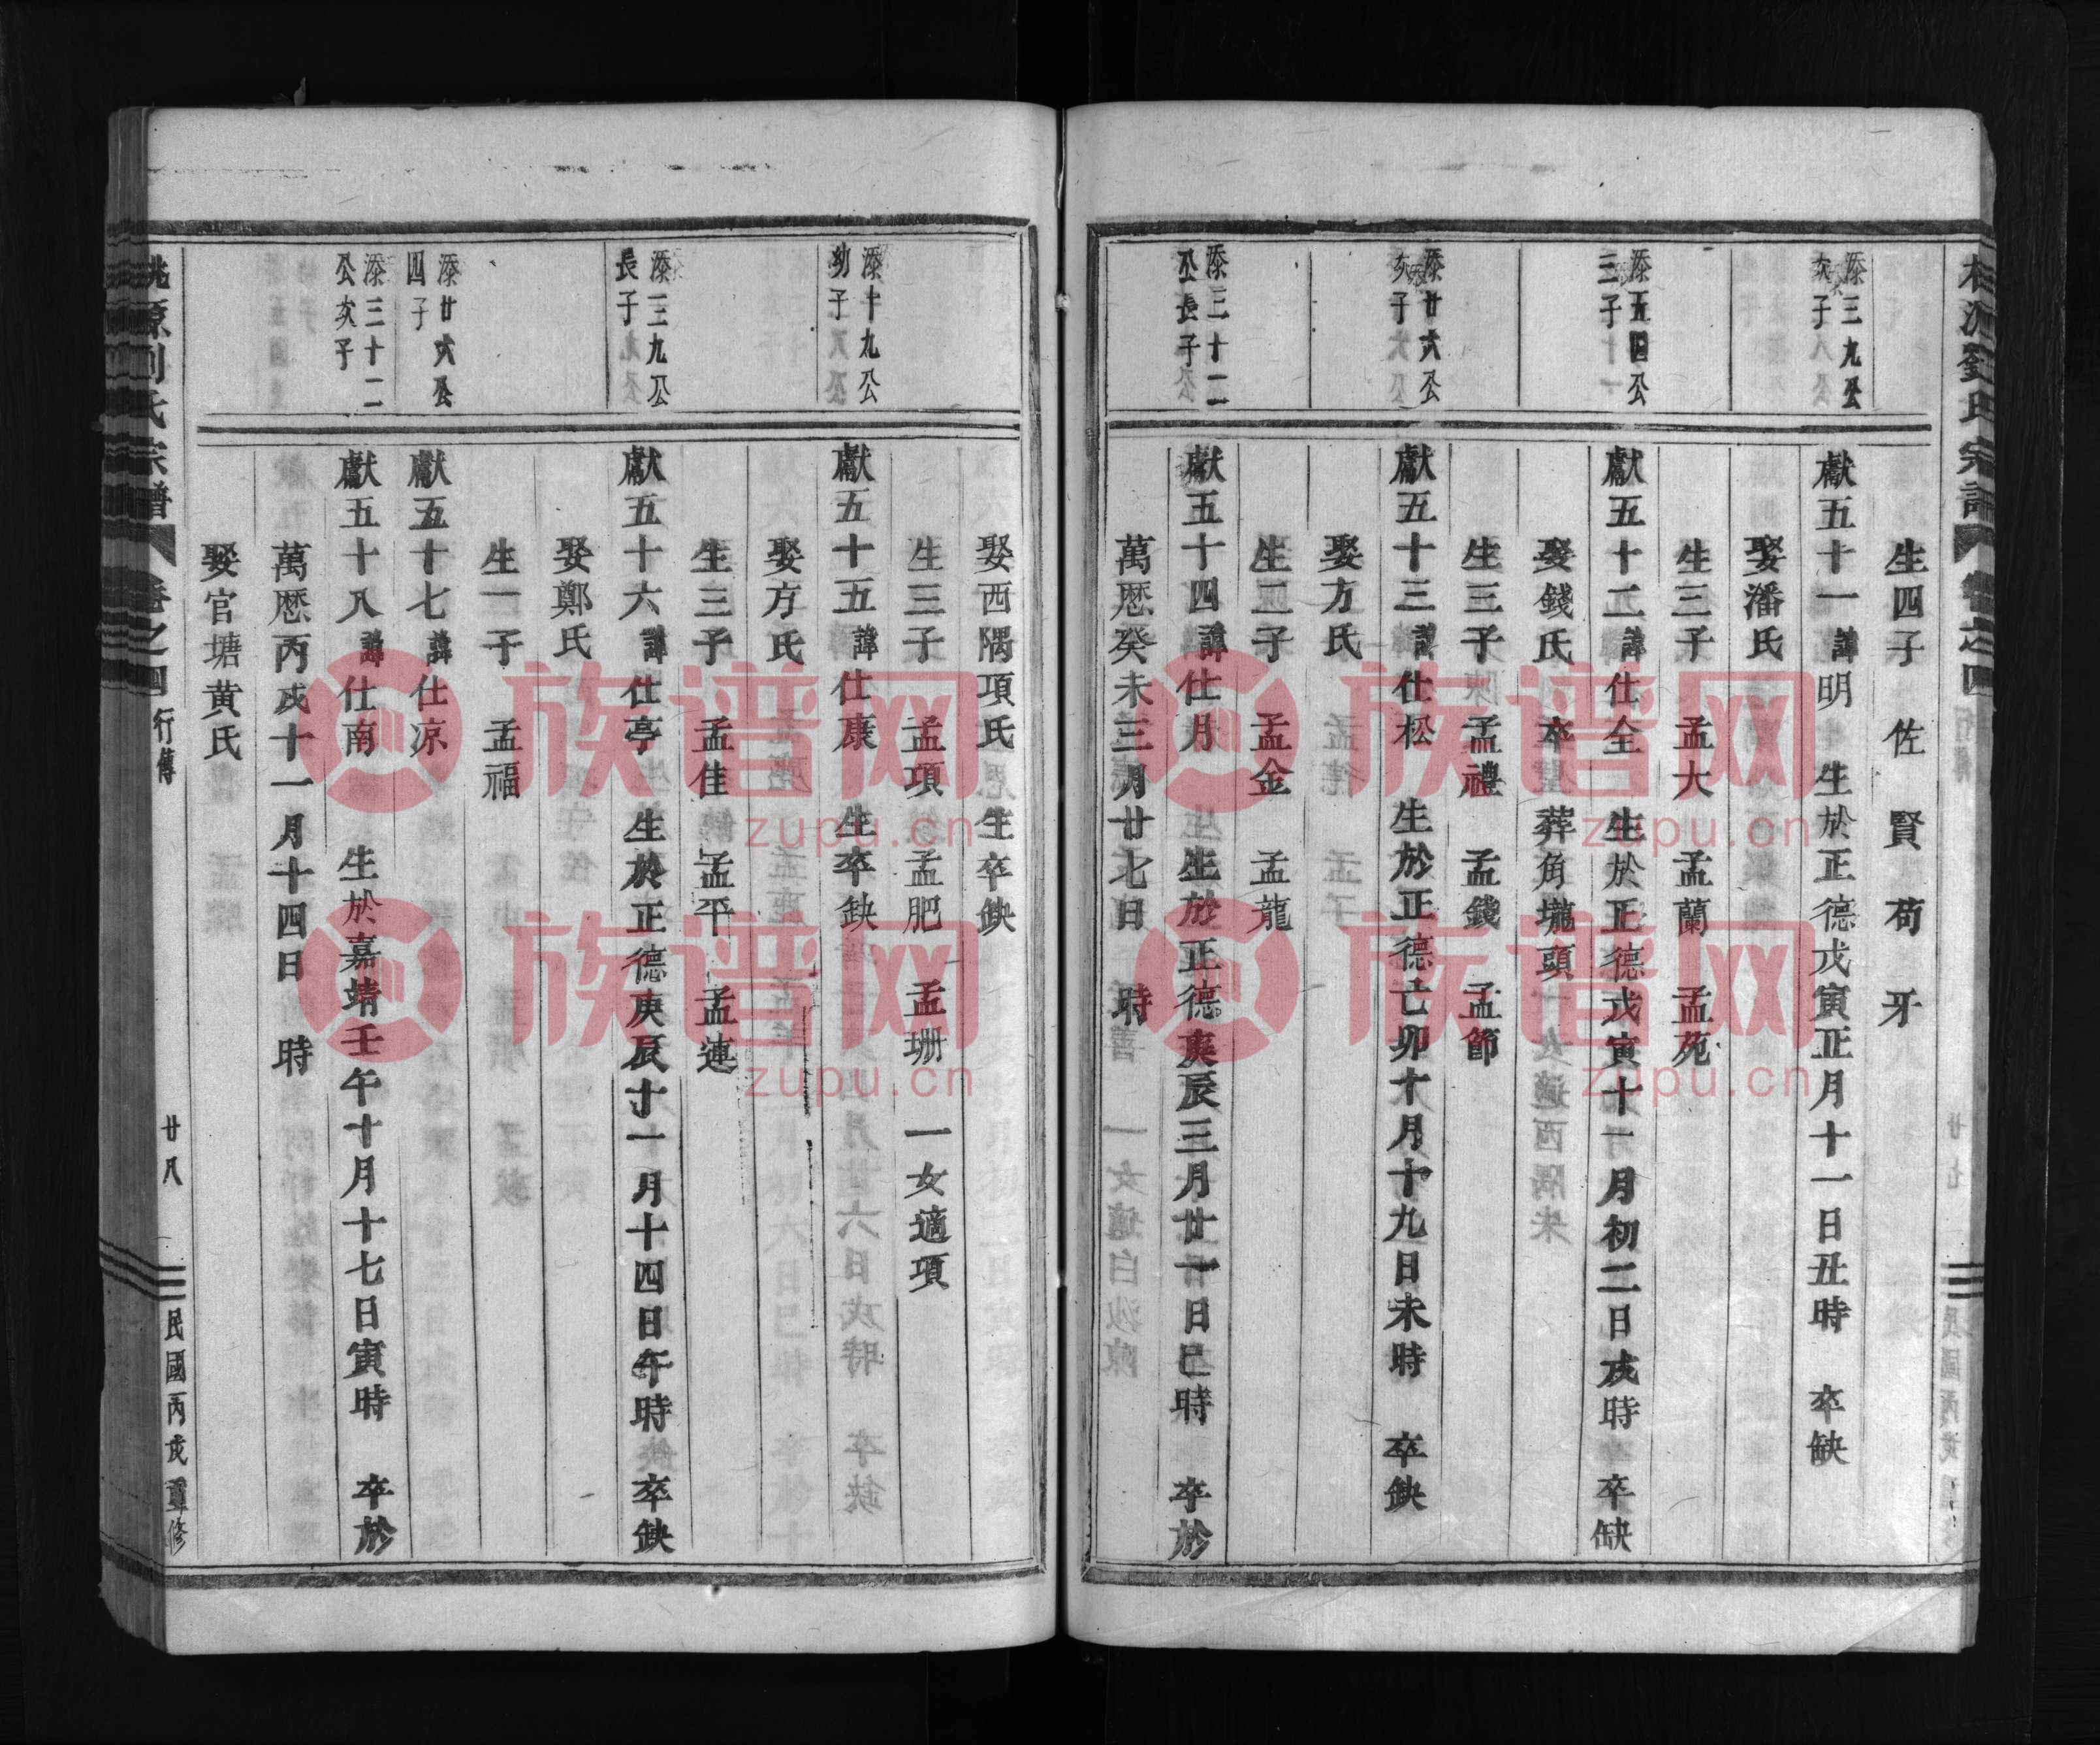 生四子　佐　賢　苟　牙
添三九公
次子
獻五十一諱明　生於正德戊寅正月十一日丑時　卒缺
娶潘氏
生三子　孟大　孟蘭　孟苑
添五四公
三子
獻五十二諱仕全　生於正德戊寅十一月初二日戌時　卒缺
娶錢氏　卒　葬角壠頭
生三子　孟禮　孟錢　孟節
添廿六公
次子
獻五十三諱仕松　生於正德亡卯十月十九日未時　卒缺
娶方氏
生二子　孟金　孟龍
添三十二
公長子
獻五十四諱仕月　生於正德庚辰三月廿一日巳時　卒於
萬厯癸未三月廿七日　時
娶西隅項氏　生卒缺
生三子　孟項　孟肥　孟珊　一女適項
添十九公
幼子
獻五十五諱仕康　生卒缺
娶方氏
生三子　孟佳　孟平　孟連
添三九公
長子
獻五十六諱仕亭　生於正德庚辰十一月十四日午時　卒缺
娶鄭氏
生一子　孟福
添廿六公
四子
獻五十七諱仕凉
添三十二
公次子
獻五十八諱仕南　生於嘉靖壬午十月十七日寅時　卒於
萬厯丙戌十一月十四日　時
娶官塘黄氏
桃源劉氏宗譜　卷之四　行傳　廿八　民國丙戌重修
族谱网
zupu.cn
族谱网
zupu.cn
族谱网
zupu.cn
族谱网
zupu.cn